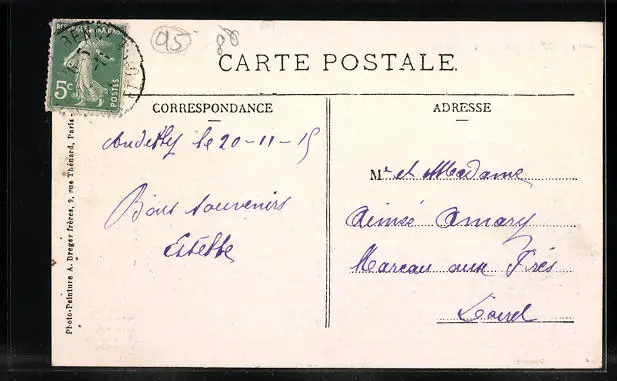 95
80
CARTE POSTALE.
5c
POSTES
CORRESPONDANCE
le 20-11-15
Bons souvenirs
Estelle
ADRESSE
Mr et Madame
Aimée Amary
Mareau aux Prés
Loiret
Photo-Peinture A. Breger frères, 9, rue Thénard, Paris.